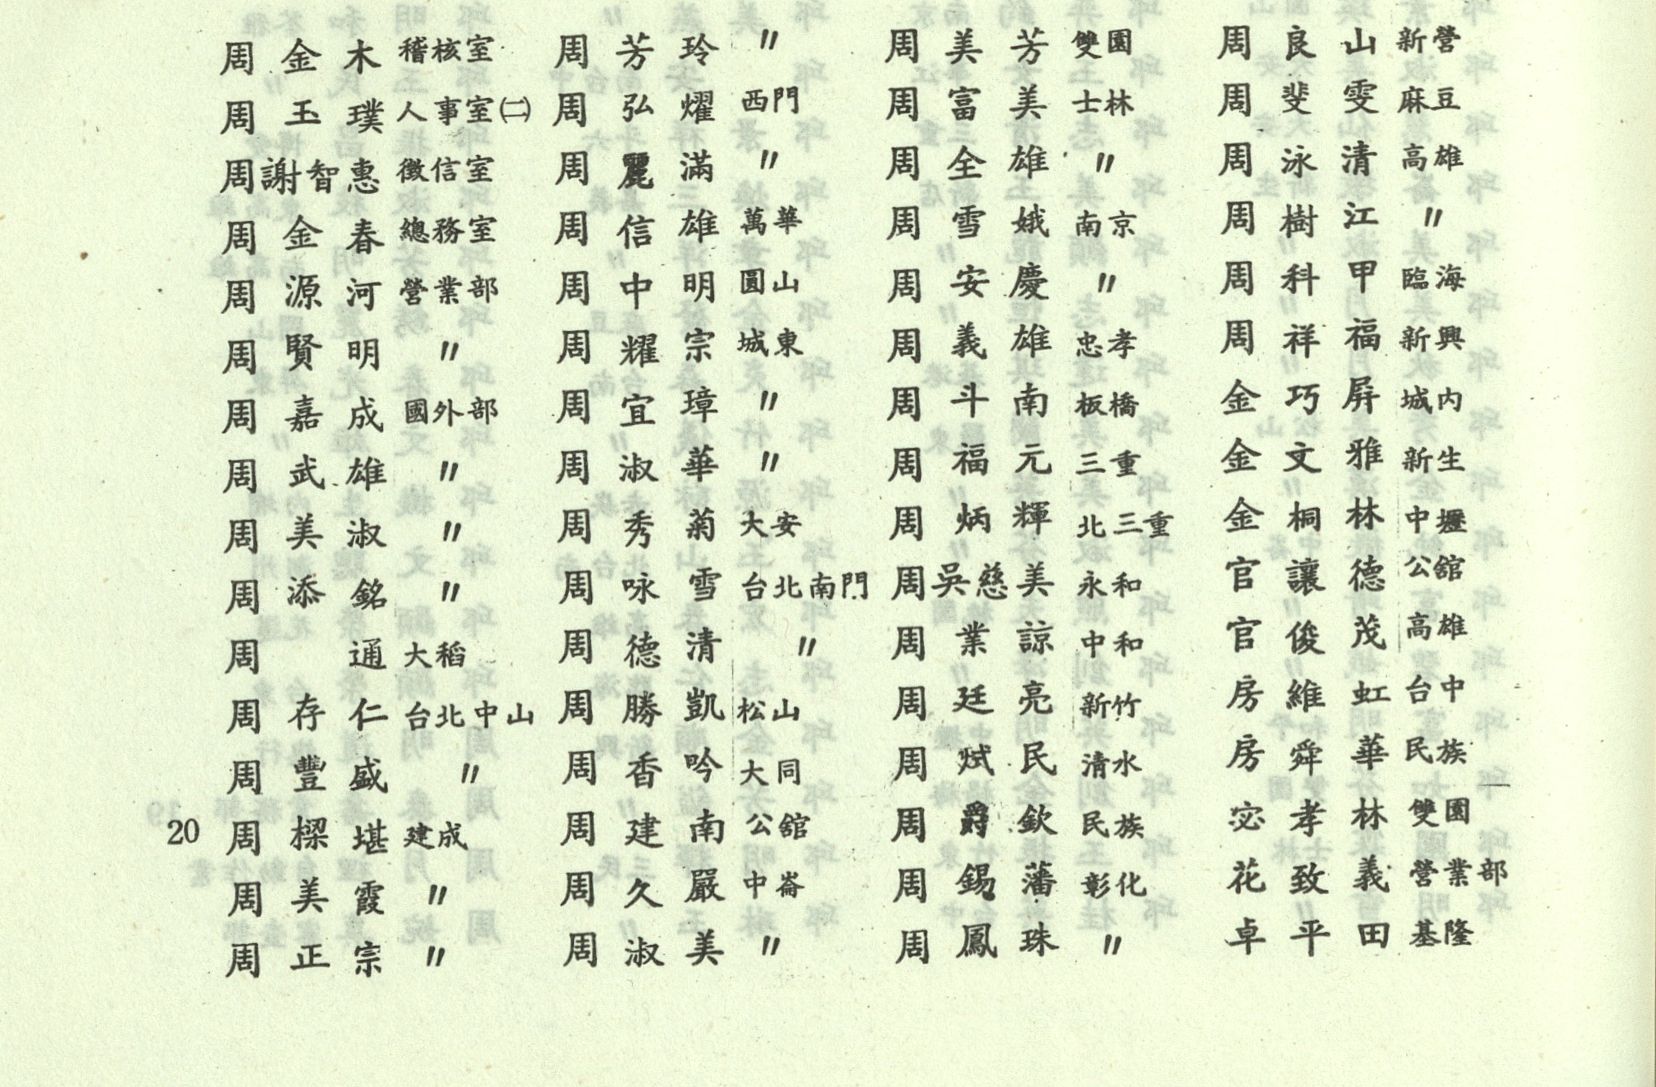 周金木 稽核室
周玉璞 人事室㈡
周謝智惠 徵信室
周金春 總務室
周源河 營業部
周賢明 〃
周嘉成 國外部
周武雄 〃
周美淑 〃
周添銘 〃
周通 大稻
周存仁 台北中山
周豐盛 〃
周樑堪 建成
周美霞 〃
周正宗 〃
周芳玲 〃
周弘燿 西門
周麗滿 〃
周信雄 萬華
周中明 圓山
周耀宗 城東
周宜璋 〃
周淑華 〃
周秀菊 大安
周咏雪 台北南門
周德清 〃
周勝凱 松山
周香吟 大同
周建南 公舘
周久嚴 中崙
周淑美 〃
周美芳 雙園
周富美 士林
周全雄 〃
周雪娥 南京
周安慶 〃
周義雄 忠孝
周斗南 板橋
周福元 三重
周炳輝 北三重
周吳慈美 永和
周業諒 中和
周廷亮 新竹
周斌民 清水
周爵欽 民族
周錫藩 彰化
周鳳珠 〃
周良山 新營
周斐雯 麻豆
周泳清 高雄
周樹江 〃
周科甲 臨海
周祥福 新興
金巧屏 城內
金文雅 新生
金桐林 中壢
官讓德 公舘
官俊茂 高雄
房維虹 台中
房舜華 民族
宓孝林 雙園
花致義 營業部
卓平田 基隆
20